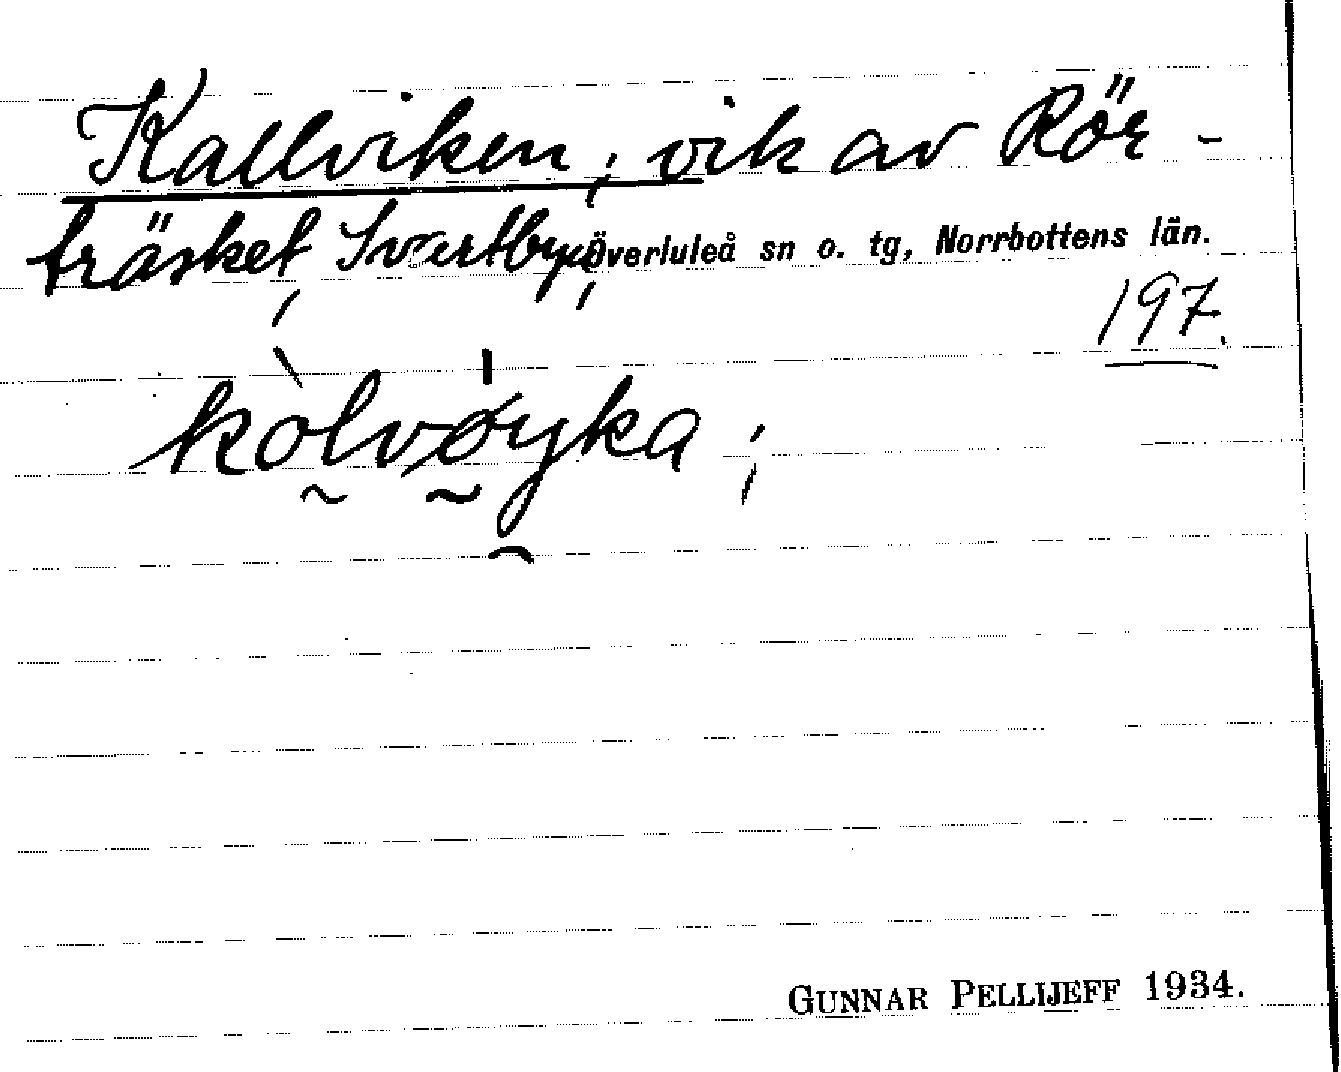 Kallviken; vik av Rör-
träsket, Svartbyn, Överluleå sn o. tg, Norrbottens län.
197.
kòlvǿyka;
GUNNAR PELLIJEFF 1934.